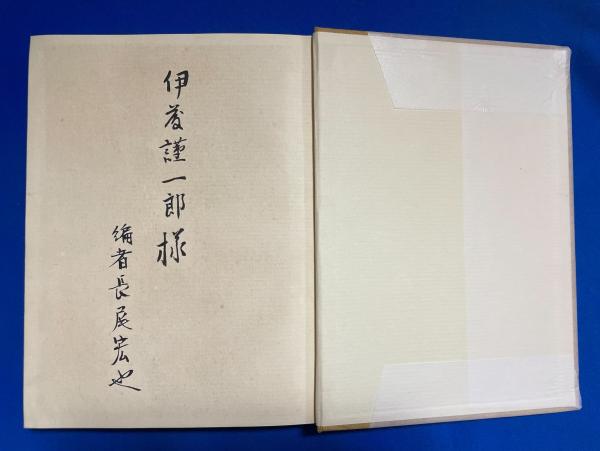 伊藤謹一郎様
編者長尾宏也